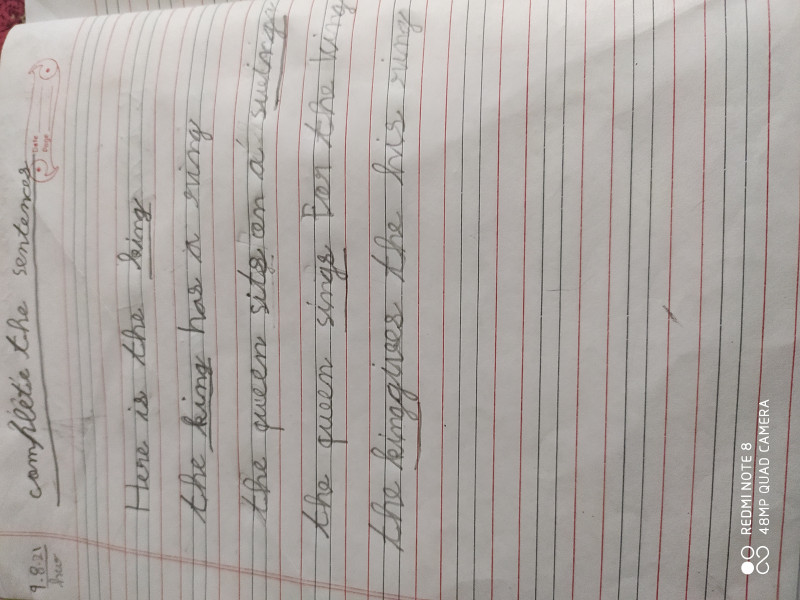 9.8.21
H.W
Date
Page
complete the sentences
Here is the king
the king has a ring
the queen sits on a swing
the queen sings For the king
the king gives the his ring
REDMI NOTE 8
48MP QUAD CAMERA